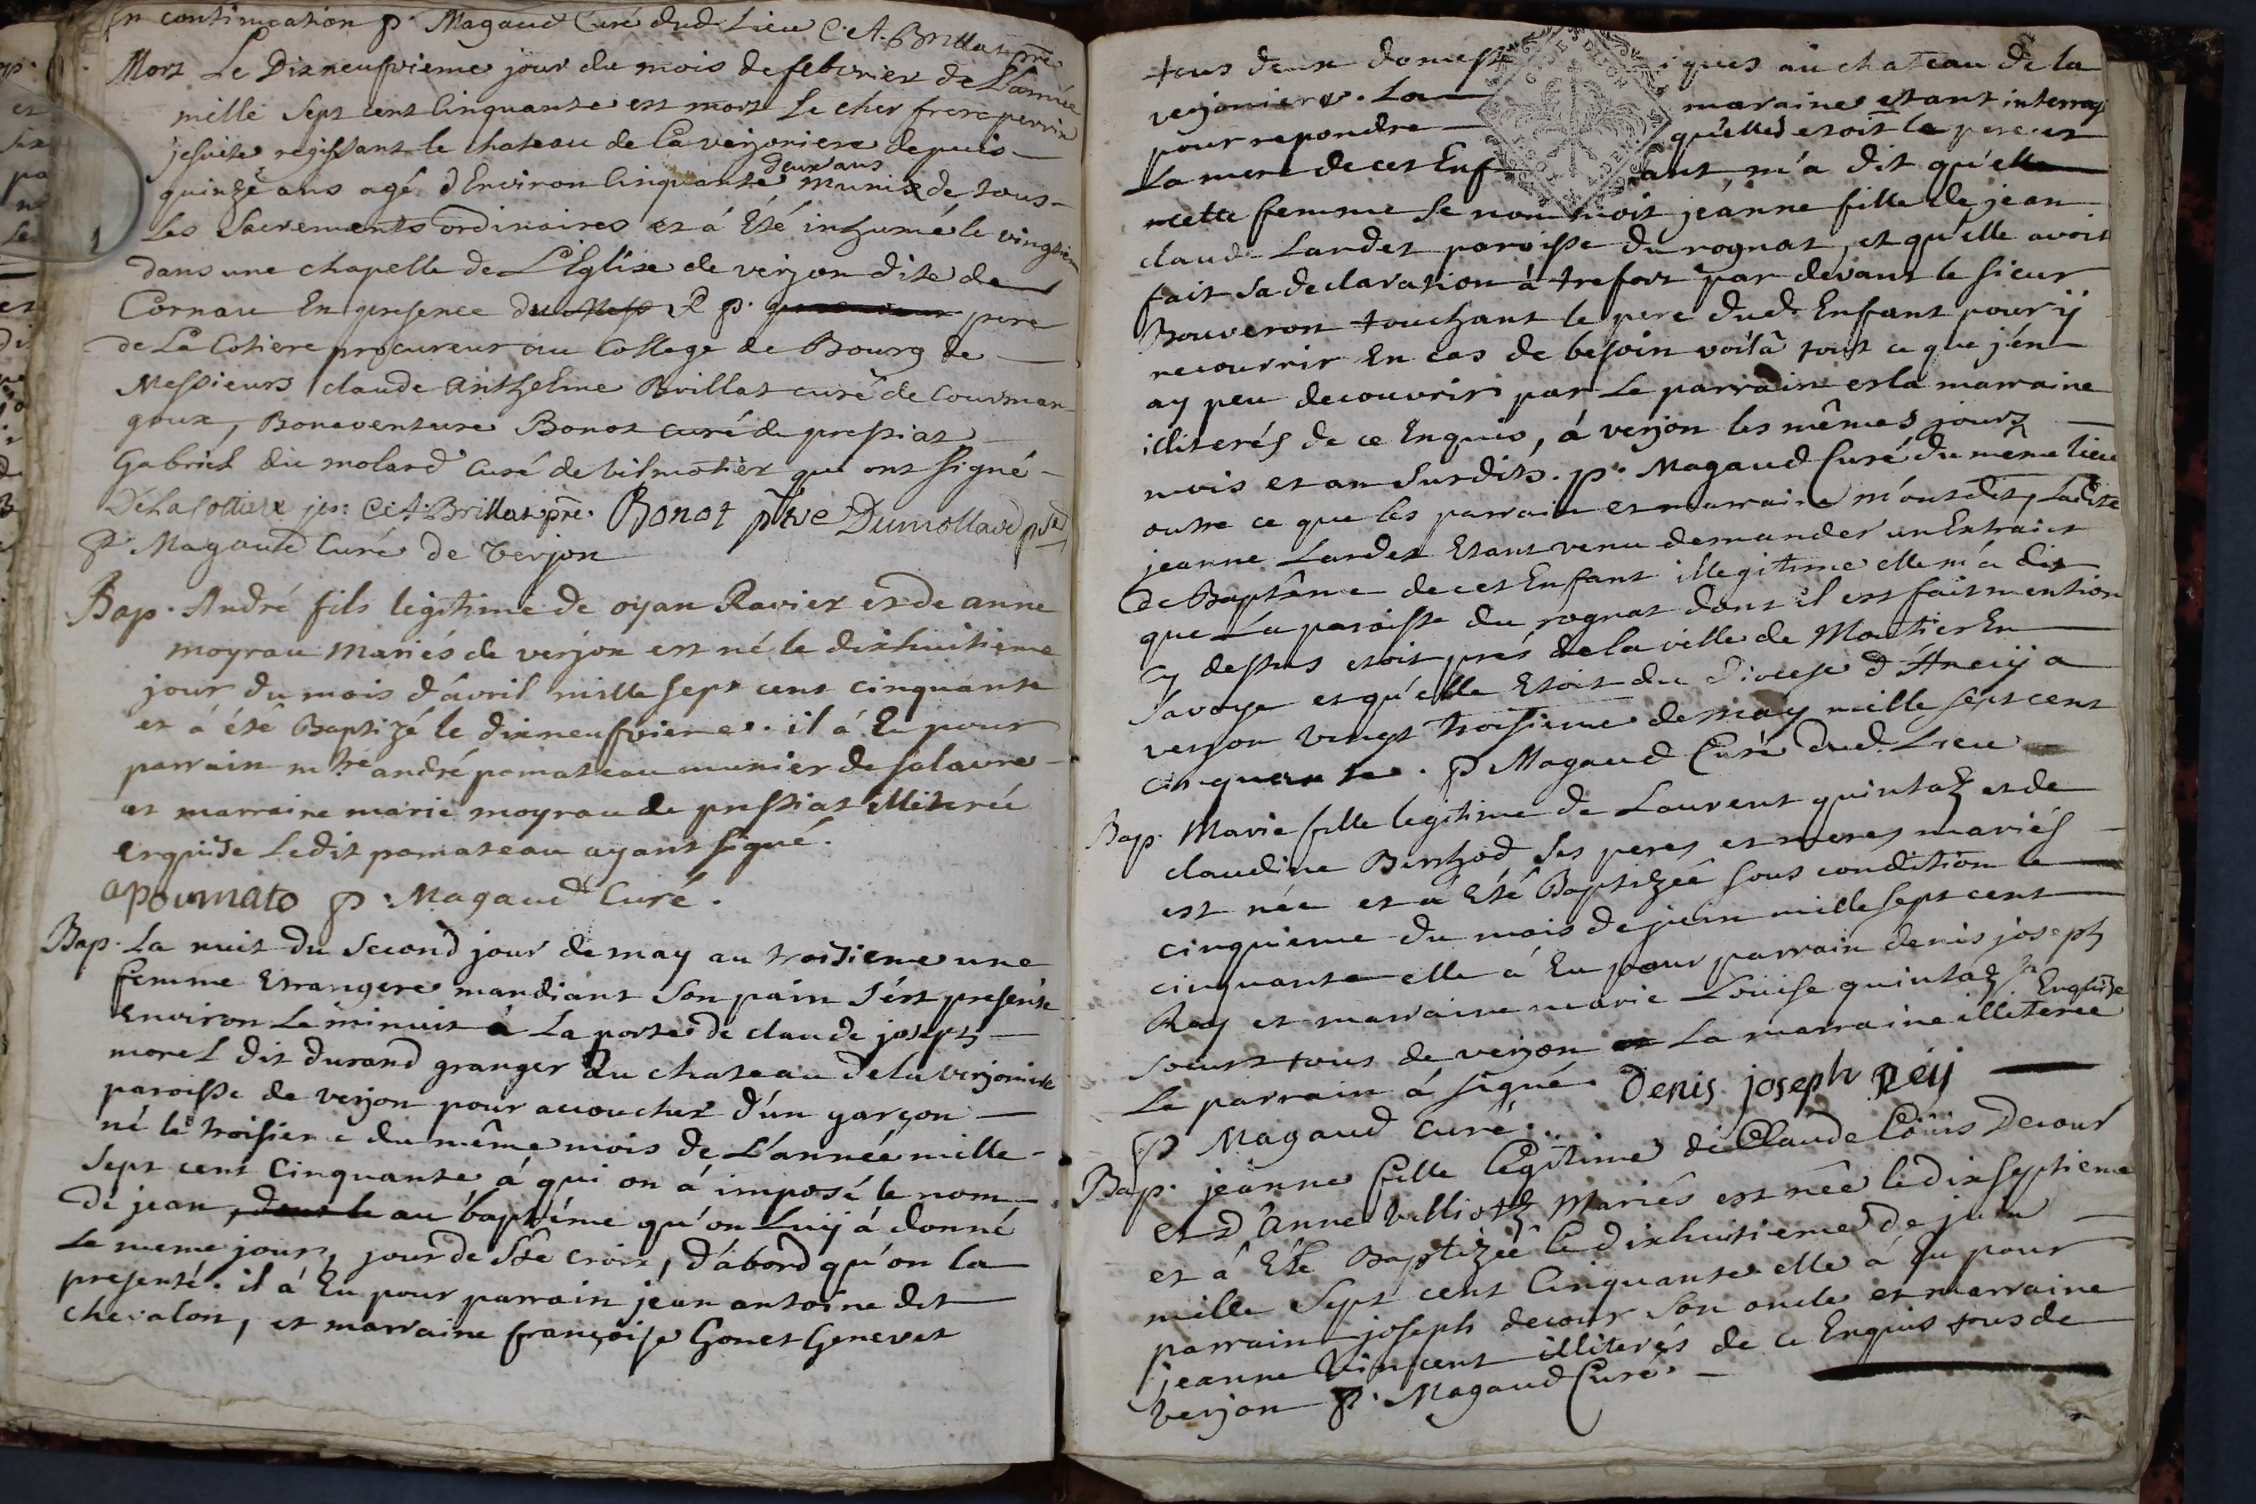 En continuation p. Magaud Curé dud. Lieu C. A. Brillat ptre
Mort Le Dixneufvieme jour du mois de febvrier de L'année
mille sept cent Cinquante est mort Le cher frere perrin
jesuite regissant le chateau de La verjoniere depuis
quinze ans agé d'Environ Cinquante deux ans munix de tous
Les Sacrements ordinaires et á Eté inhumé le vingtiem
dans une chapelle de L'Eglise de verjon dite de
Cornau En presence du R p. pere
de La Cotiere procureur au College de Bourg de
Messieurs claude anthelme Brillat curé de Courman
goux, Bonaventure Bonot curé de pressiat
Gabriel du molard Curé de vilmotier qui ont signé
De La Cottiere jes: C. A. Brillat ptre. Bonot ptre Dumollard ptre
p. Magaud Curé de Verjon
Bap. André fils legitime de oyan Ravier et de anne
moyrau Mariés de verjon est né le dixhuitieme
jour du mois d'avril mille sept cent cinquante
et á été Baptizé le dixneufvieme. il á Eu pour
parrain mtre andré pomateau munier de salavre
et marraine marie moyrau de pressiat illiterée
Enquise Ledit pomateau ayant signé.
apoumato p. Magaud Curé.
Bap. La nuit du second jour de may au troisieme une
femme Etrangere mandiant son pain s'est presenté
Environ Le minuit á La porte de claude joseph
morel dit durand granger du chateau de la verjoniere
paroisse de verjon pour accoucher d'un garçon
né le troisieme du même mois de L'année mille
sept cent Cinquante á qui on á imposé le nom
de jean, au baptéme qu'on Luy á donné
Le meme jour, jour de Ste croix, d'ábord qu'on la
presenté. il á Eu pour parrain jean antoine dit
chevalon, et marraine françoise Gonet Genevet
tous deux domestiques au chateau de la
verjoniere. La maraine etant interrog
pour repondre qu'elle etoit le pere et
La mere de cet Enfant m'a dit qu'elle
cette femme se nommoit jeanne fille de jean
claude Lardet paroisse du rognat, et qu'elle avoit
fait sa declaration á trefort par devant le sieur
Bouveron touchant le pere dud. Enfant pour y
recourrir En cas de besoin voilà tout ce que j'en
ay peu decouvrir par Le parrain et la marraine
illiterés de ce Enquis, á verjon les mêmes jour
mois et an surdits. p. Magaud Curé du meme lieu
outre ce que les parrain et marraine m'ont dit, Ladite
jeanne Lardet Etant venu demander un Extrait
de Baptême de cet Enfant illegitime elle m'a dit
que La paroisse du rognat dont il est fait mention
cy dessus etoit prés de la ville de Moutier En
Savoye et qu'elle Etoit du diocese d'Anecy a
verjon vingt troisieme de may mille sept cent
cinquante. p Magaud Curé dud. Lieu
Bap. Marie fille legitime de Laurent quintaz et de
claudine Berthod ses peres et meres mariés
est née et a Eté Baptizée sous condition le
cinquieme du mois de juin mille sept cent
cinquante elle á Eu pour parrain denis joseph
Rey et marraine marie Louise quintaz sa
soeur tous de verjon La marraine illiterée Enquise
Le parrain á signé. Denis joseph rey
p Magaud curé.
Bap. jeanne fille legitime de Claude Loüis Decour
et d'Anne Mariés est née le dix septieme
et á Eté Baptizée le dixhuitieme de juin
mille sept cent Cinquante elle á Eu pour
parrain joseph decour son oncle et marraine
jeanne Vincent illiterés de ce Enquis tous de
verjon p. Magaud Curé.